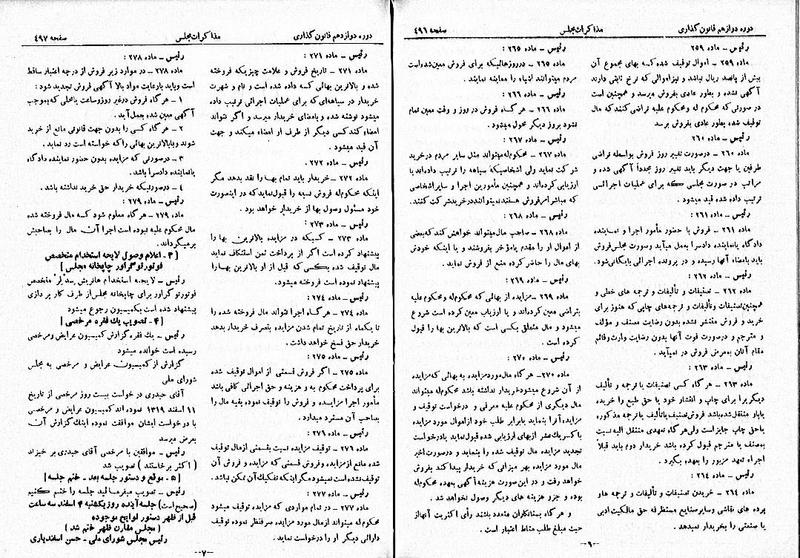 دوره دوازدهم قانون گذاری
مذاکرات مجلس
صفحه ۴۹۶
رئیس ـ ماده ۲۵۹
ماده ۲۵۹ ـ اموال توقیف شده که بهای مجموع آن
بیش از پانصد ریال نباشد و نیز اموالی که نرخ ثابتی دارند
آگهی نشده و بطور عادی بفروش میرسد و همچنین است
در صورتی که محکوم له و محکوم علیه تراضی کنند که مال
توقیف شده بطور عادی بفروش برسد
رئیس ـ ماده ۲۶۰
ماده ۲۶۰ ـ در صورت تغییر روز فروش بواسطه تراضی
طرفین یا جهت دیگر باید تغییر روز مجدداً آگهی شده و
مراتب در صورت مجلسی که برای عملیات اجرائی
ترتیب داده شده قید میشود.
رئیس ـ ماده ۲۶۱
ماده ۲۶۱ ـ فروش با حضور مأمور اجرا و نماینده
دادگاه یا نماینده دادسرا بعمل میآید و صورت مجلس فروش
باید بامضاء آنها رسیده و در پرونده اجرائی بایگانی شود.
رئیس ـ ماده ۲۶۲
ماده ۲۶۲ ـ تصنیفات و تألیفات و ترجمه های خطی و
همچنین تصنیفات و تألیفات و ترجمه های چاپی که هنوز برای
خرید و فروش منتشر نشده بدون رضایت مصنف و مؤلف
و مترجم و در صورت فوت آنها بدون رضایت وارث و قائم
مقام آنان بمعرض فروش در نمیآید.
رئیس ـ ماده ۲۶۳
ماده ۲۶۳ ـ هر گاه کسی تصنیفات یا ترجمه و تألیف
دیگری را برای چاپ و انتشار خود یا حق طبع را خریده
یا باو منتقل شده باشد فروش تصنیف یا تألیف یا ترجمه مذکوره
با حق چاپ جایز است ولی هر گاه تعهدی منتقل الیه نسبت
بمصنف یا مترجم قبول کرده باشد خریدار دوم باید قبلاً
اجراء تعهد مزبور را بعهده بگیرد.
رئیس ـ ماده ۲۶۴
ماده ۲۶۴ ـ خریدن تصنیفات و تألیفات و ترجمه ها و
پرده های نقاشی و سایر صنایع مستظرفه حق مالکیت ادبی
یا صنعتی را بخریدار نمیدهد.
رئیس ـ ماده ۲۶۵
ماده ۲۶۵ ـ در روزهائیکه برای فروش معین شده است
مردم میتوانند اشیاء را معاینه نمایند.
رئیس ـ ماده ۲۶۶
ماده ۲۶۶ ـ هر گاه فروش در روز و وقت معین تمام
نشود بروز دیگر محول میشود.
رئیس ـ ماده ۲۶۷
ماده ۲۶۷ ـ محکوم له میتواند مثل سایر مردم در خرید
شرکت نماید ولی اشخاصیکه سیاهه را ترتیب داده اند یا
ارزیابی کرده اند و همچنین مأمورین اجرا و سایر اشخاصی
که مباشر امر فروش هستند نمیتوانند در خرید شرکت کنند.
رئیس ـ ماده ۲۶۸
ماده ۲۶۸ ـ صاحب مال میتواند خواهش کند که بعضی
از اموال او را مقدم یا مؤخر بفروشند و یا اینکه خودش
بهای مال را حاضر کرده منع از فروش نماید.
رئیس ـ ماده ۲۶۹
ماده ۲۶۹ ـ مزایده از بهائی که محکوم له و محکوم علیه
بتراضی معین کرده اند و یا ارزیاب معین کرده است شروع
میشود و مال متعلق بکسی است که بالاترین بها را قبول
کرده است.
رئیس ـ ماده ۲۷۰
ماده ۲۷۰ ـ هر گاه مال مورد مزایده به بهائی که مزایده
از آن شروع میشود خریدار نداشته باشد محکوم له میتواند
مال دیگری از محکوم علیه معرفی و درخواست توقیف و
مزایده آنرا بنماید یا برابر طلب خود از اموال مورد مزایده
با کسر یک عشر از بهای ارزیابی شده قبول نماید یا درخواست
تجدید مزایده مال توقیف شده را بنماید و در صورت اخیر
مال مورد مزایده بهر میزانی که خریدار پیدا کند بفروش
خواهد رفت و در این صورت هزینه آگهی بعهده محکوم له
بوده و جزو هزینه های دیگر وصول نخواهد شد.
و هر گاه بستانکاران متعدد باشند رأی اکثریت آنها از
حیث مبلغ طلب مناط اعتبار است.
ـ ۶ ـ
دوره دوازدهم قانون گذاری
مذاکرات مجلس
صفحه ۴۹۷
رئیس ـ ماده ۲۷۱ :
ماده ۲۷۱ ـ تاریخ فروش و علامت چیزیکه فروخته
شده و بالاترین بهائی که داده شده است و نام و شهرت
خریدار در سیاهه ای که برای عملیات اجرائی ترتیب داده
میشود نوشته شده و بامضای خریدار میرسد و اگر نتواند
امضاء کند کسی دیگر از طرف او امضاء میکند و جهت
آن قید میشود.
رئیس ـ ماده ۲۷۲ :
ماده ۲۷۲ ـ خریدار باید تمام بها را نقد بدهد مگر
اینکه محکوم له فروش نسیه را قبول نماید که در اینصورت
خود مسئول وصول بها از خریدار خواهد بود.
رئیس ـ ماده ۲۷۳ :
ماده ۲۷۳ ـ کسیکه در مزایده بالاترین بها را
پیشنهاد کرده است اگر از پرداخت ثمن استنکاف نماید
مال توقیف شده بکسی که قبل از او بالاترین بها را
پیشنهاد نموده است فروخته میشود.
رئیس ـ ماده ۲۷۴ :
ماده ۲۷۴ ـ هر گاه اجرا نتواند مال فروخته شده را
تا یکماه از تاریخ تمام شدن مزایده بتصرف خریدار بدهد
خریدار حق فسخ خواهد داشت.
رئیس ـ ماده ۲۷۵ :
ماده ۲۷۵ ـ اگر فروش قسمتی از اموال توقیف شده
برای پرداخت محکوم به و هزینه و حق اجرائی کافی باشد
مأمور اجرا مزایده و فروش را توقیف نموده بقیه مال را
بصاحب آن مسترد میدارد.
رئیس ـ ماده ۲۷۶ :
ماده ۲۷۶ ـ توقیف مزایده نسبت بقسمتی از مال توقیف
شده مانع از مزایده و فروش قسمتی که مزایده و فروش آن
توقیف نشده است نمیشود مگر اینکه تفکیک آن ممکن نباشد.
رئیس ـ ماده ۲۷۷ :
ماده ۲۷۷ ـ در تمام مواردی که مزایده توقیف میشود
محکوم له میتواند از مال مورد مزایده صرفنظر نموده توقیف
دارائی دیگر او را درخواست نماید.
رئیس ـ ماده ۲۷۸ :
ماده ۲۷۸ ـ در موارد زیر فروش از درجه اعتبار ساقط
است و باید با رعایت مواد بالا آگهی فروش تجدید شود :
۱ ـ هر گاه فروش در غیر روز و ساعت یا محلی که بموجب
آگهی معین شده بعمل آید.
۲ ـ هر گاه کسی را بدون جهت قانونی مانع از خرید
شوند و یا بالاترین بهائی را که خواسته است رد نمایند.
۳ ـ در صورتی که مزایده بدون حضور نماینده دادگاه
یا نماینده دادسرا باشد.
۴ ـ در صورتیکه خریدار حق خرید نداشته باشد.
رئیس ـ ماده ۲۷۹ :
ماده ۲۷۹ ـ هر گاه معلوم شود که مال فروخته شده
مال محکوم علیه نبوده است اجرا آن مال را بصاحبش
برمیگرداند.
[ ۳ ـ اعلام وصول لایحه استخدام متخصص
فوتوزنکوگراور چاپخانه مجلس ]
رئیس ـ لایحه استخدام متخصص
فوتوزنکوگراور برای چاپخانه مجلس از طرف کارپردازی
پیشنهاد شده است بکمیسیون رجوع میشود
[ ۴ ـ تصویب یک فقره مرخصی ]
رئیس ـ یک فقره گزارش کمیسیون عرایض و مرخصی
رسیده است خوانده میشود
گزارش از کمیسیون عرایض و مرخصی به مجلس
شورای ملی
آقای حیدری درخواست بیست روز مرخصی از تاریخ
۱۱ اسفند ۱۳۱۹ نموده اند کمیسیون عرایض و مرخصی
با درخواست ایشان موافقت نموده اینک گزارش آن
بعرض میرسد
رئیس ـ موافقین با مرخصی آقای حیدری بر خیزند
( اکثر برخاستند ) تصویب شد
[ ۵ ـ موقع و دستور جلسه بعد ـ ختم جلسه ]
رئیس ـ تصویب میفرمائید جلسه را ختم کنیم
( صحیح است ) جلسه آینده روز یکشنبه ۴ اسفند سه ساعت
قبل از ظهر دستور لوایح موجوده
( مجلس مقارن ظهر ختم شد )
رئیس مجلس شورای ملی ـ حسن اسفندیاری
ـ ۷ ـ